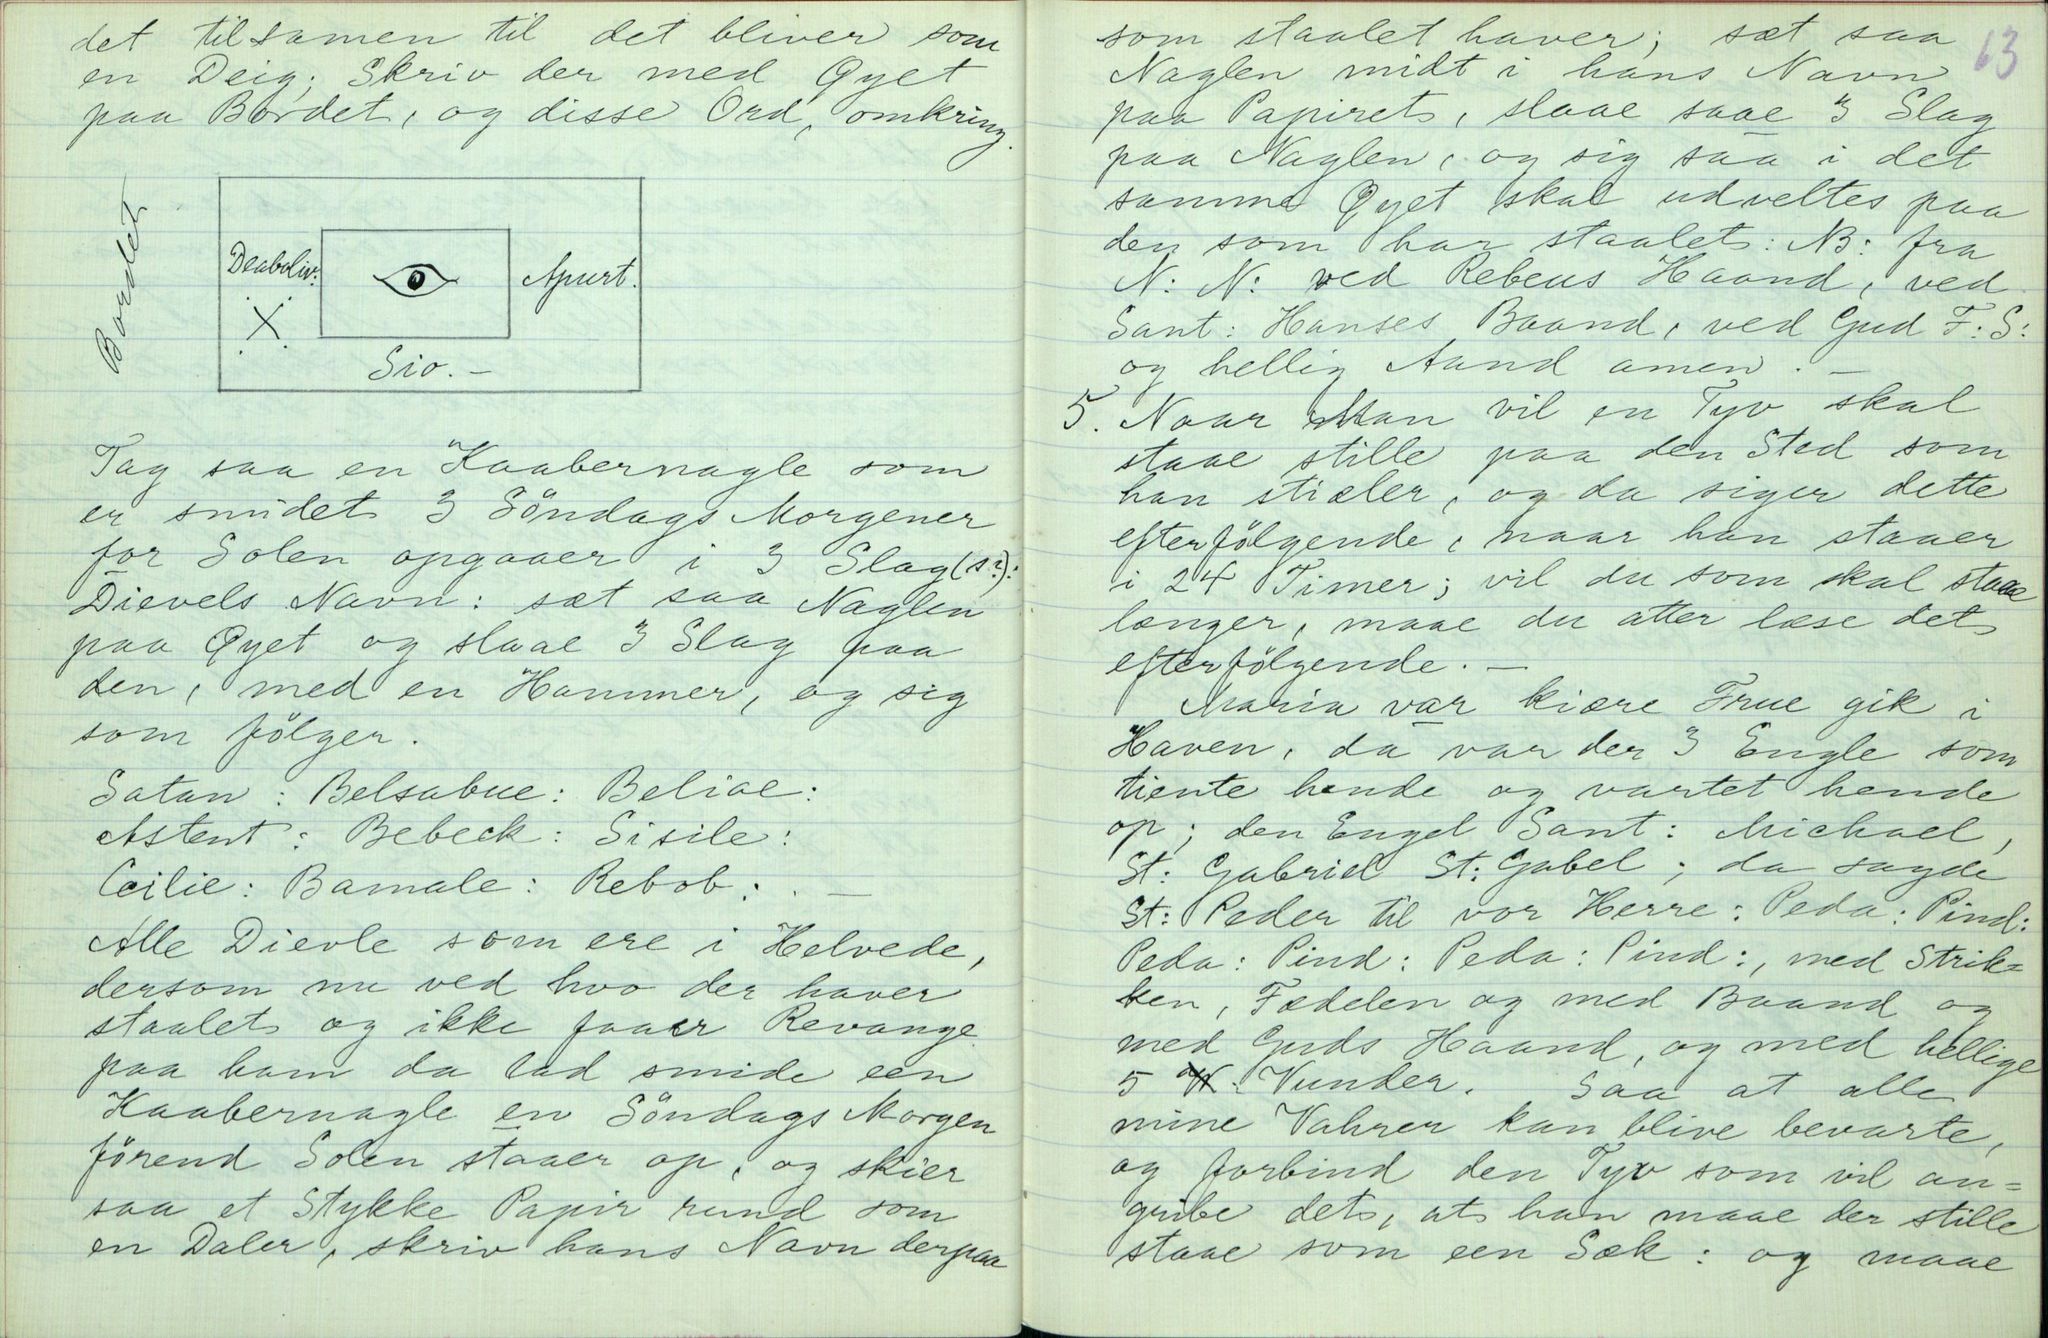 det tilsamen til det bliver som
en Deig; Skriv der med Øyet
paa Bordet, og disse Ord, omkring.
Bordet
Deaboliv:
Apurt.
X
Sio. -
Tag saa en Kaabernagle som
er smidet 3 Söndags Morgener
for Solen opgaaer i 3 Slag (s?):
Dievels Navn: sæt saa Naglen
paa Øyet og slaae 3 Slag paa
den, med en Hammer, og sig
som fölger.
Satan: Belsabue: Beliae:
Astent: Bebeck: Sisile:
Ceilie: Bamale: Rebob: . —
Alle Dievle som ere i Helvede,
dersom nu ved hvo der haver
staalet og ikke faaer Revange
paa ham da lad smide een
Kaabernagle en Söndags Morgen
förend Solen staaer op, og skier
saa et Stykke Papir rund som
en Daler, skriv hans Navn derpaa
63
som staalet haver; sæt saa
Naglen midt i hans Navn
paa Papiret, slaae saae 3 Slag
paa Naglen, og sig saa i det
samme Øyet skal udveltes paa
den som har staalet: NB: fra
N: N: ved Rebeus Haand, ved
Sant: Hanses Baand, ved Gud F: S:
og hellig Aand amen. —
5. Naar Man vil en Tyv skal
staae stille paa den Sted som
han stiæler, og da siger dette
efterfölgende, naar han staaer
i 24 Timer; vil du som skal staae
længer, maae du atter læse det
efterfölgende. —
Maria var kiære Frue gik i
Haven, da var der 3 Engle som
tiente hende og vartet hende
op; den Engel Sant: Michael,
St: Gabriel St: Gabel; da sagde
St: Peder til vor Herre: Peda: Pind:
Peda: Pind: Peda: Pind:, med Strik=
ken, Fædelen og med Baand og
med Guds Haand, og med hellige
5 Vunder. Saa at alle
mine Vahrer kan blive bevarte,
og forbind den Tyv som vil an=
gribe det, at han maae der stille
staae som een Sæk: og maae